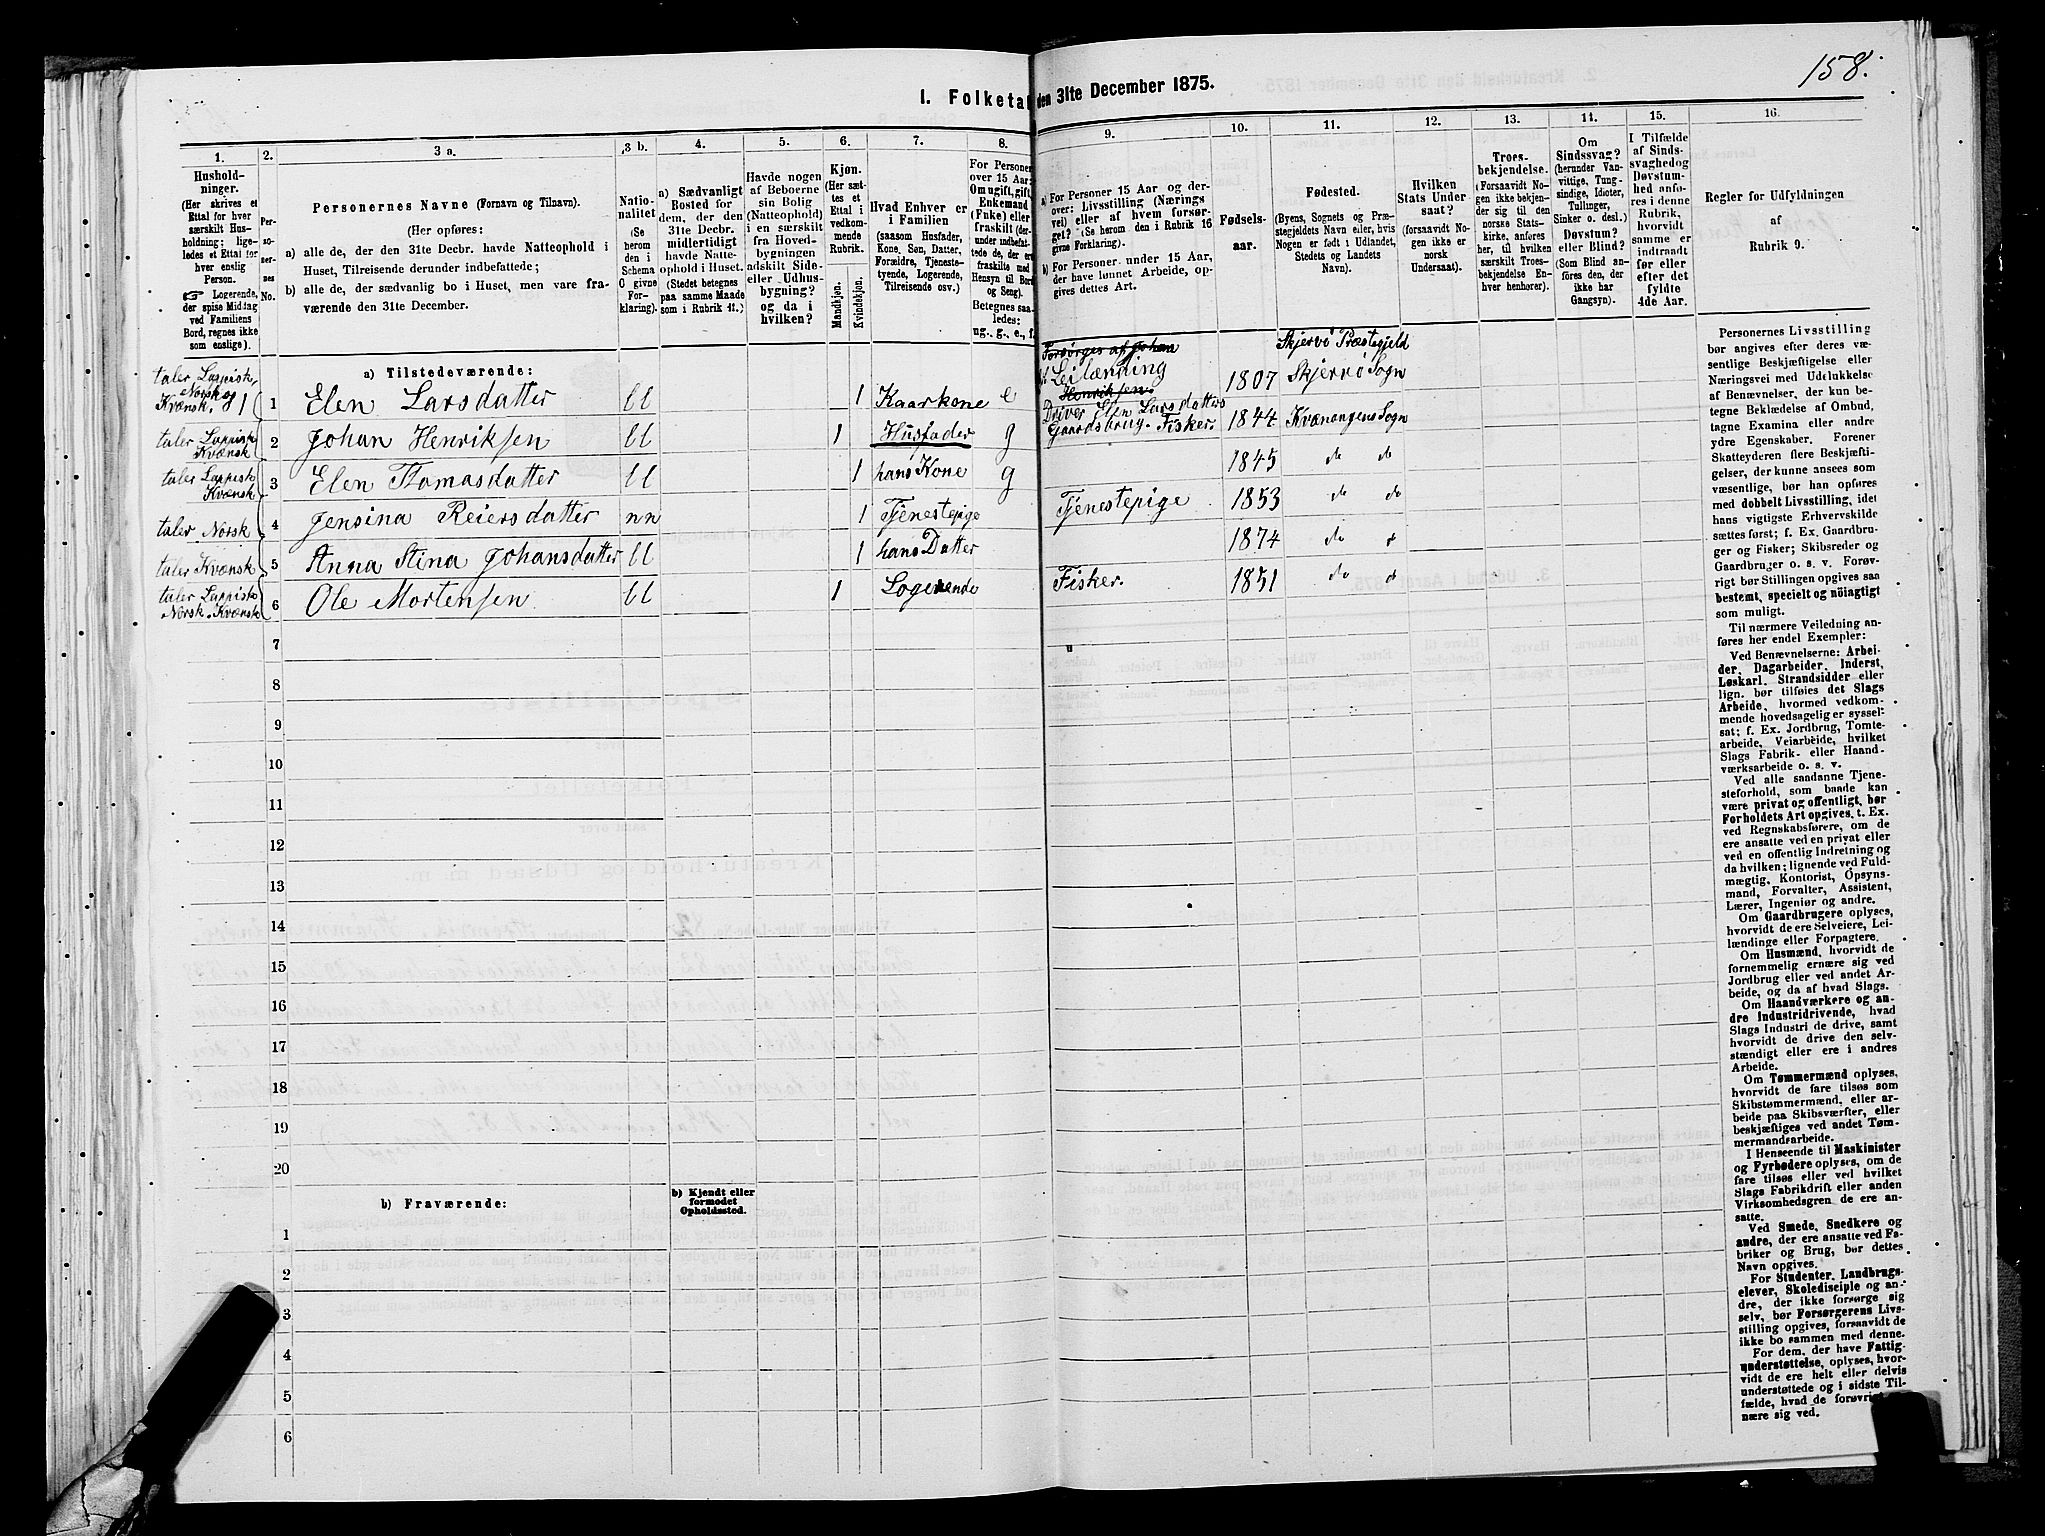 158.
I. Folketal den 31te December 1875.
1.
Hushold-
ninger.
(Her skrives et
Ettal for hver
særskilt Hus-
holdning; lige-
ledes et Ettal for
hver enslig
Person.
☞ Logerende,
der spise Middag
ved Familiens
Bord, regnes ikke
som enslige).
2.
Per-
so-
ner-
nes
No.
3 a.
Personernes Navne (Fornavn og Tilnavn).
(Her opføres:
a) alle de, der den 31te Decbr. havde Natteophold i
Huset, Tilreisende derunder indbefattede;
b) alle de, der sædvanlig bo i Huset, men vare fra-
værende den 31te December.
3 b.
Natio-
nalitet
(Se
herom
den i
Schema
C givne
For-
klaring).
4.
a) Sædvanligt
Bosted for
dem, der den
31te Decbr.
midlertidigt
havde Natte-
ophold i Huset.
(Stedet betegnes
paa samme Maade
som i Rubrik 11.)
5.
Havde nogen
af Beboerne
sin Bolig
(Natteophold)
i en særskilt
fra Hoved-
bygningen
adskilt Side-
eller Udhus-
bygning?
og da i
hvilken?
6.
Kjøn.
(Her sæt-
tes et
Ettal i
vedkom-
mende
Rubrik.
Mandkjøn.
Kvindekjøn.
7.
Hvad Enhver er
i Familien
(saasom Husfader,
Kone, Søn, Datter,
Forældre, Tjeneste-
tyende, Logerende,
Tilreisende osv.)
8.
For Personer
over 15 Aar:
Om ugift, gift,
Enkemand
(Enke) eller
fraskilt (der-
under indbefat-
tede de, der ere
fraskilte med
Hensyn til Bord
og Seng).
Betegnes saa-
ledes:
ug., g., e., f.
9.
a) For Personer 15 Aar og der-
over: Livsstilling (Nærings
vei) eller af hvem forsør-
get? (Se herom den i Rubrik 16
givne Forklaring).
b) For Personer under 15 Aar,
der have lønnet Arbeide, op-
gives dettes Art.
10.
Fødsels-
aar.
11.
Fødested.
(Byens, Sognets og Præ-
stegjeldets Navn eller, hvis
Nogen er født i Udlandet,
Stedets og Landets
Navn).
12.
Hvilken
Stats Under
saat?
(forsaavidt No-
gen ikke er
norsk
Undersaat).
13.
Troes-
bekjendelse.
(Forsaavidt No-
gen ikke bekjen-
der sig til den
norske Stats-
kirke, anføres
her, til hvilken
særskilt Troes-
bekjendelse En-
hver henhører).
14.
Om
Sindssvag?
(herunder Van-
vittige, Tung-
sindige, Idioter,
Tullinger,
Sinker o. desl.)
Døvstum?
eller Blind?
(Som Blind an-
føres den, der
ikke har
Gangsyn).
15.
I Tilfælde
af Sinds-
svaghed og
Døvstum-
hed anfø-
res i denne
Rubrik,
hvorvidt
samme er
indtraadt
før eller
efter det
fyldte
4de Aar.
16.
Regler for Udfyldningen
af
Rubrik 9.
a) Tilstedeværende:
Forsørges af Johan
Henriksen
Skjervø Præstegjeld
taler Lappisk, Norsk og Kvænsk. 81 1 Elen Larsdatter ll 1 Kaarkone e Leilænding 1807 Skjervø Sogn
taler Lappisk Kvænsk 2 Johan Henriksen ll 1 Husfader g Driver Elen Larsdatters Gaardsbrug. Fisker. 1844 Kvænangens Sogn
taler Lappisk Kvænsk 3 Elen Thomasdatter ll 1 hans Kone g 1845 do do
taler Norsk 4 Jensina Reiersdatter nn 1 Tjenestepige Tjenestepige 1853 do do
taler Kvænsk 5 Anna Stina Johansdatter ll 1 hans Datter 1874 do do
taler Lappisk Norsk. Kvænsk 6 Ole Mortensen ll 1 Logerende Fisker. 1851 do do
7
8
9
10
11
12
13
14
15
16
17
18
19
20
b) Fraværende:
b) Kjendt eller
formodet
Opholdssted.
1
2
3
4
5
6
Personernes Livsstilling
bør angives efter deres væ-
sentlige Beskjæftigelse eller
Næringsvei med Udelukkelse
af Benævnelser, der kun be-
tegne Beklædelse af Ombud,
tagne Examina eller andre
ydre Egenskaber. Forener
Skatteyderen flere Beskjæfti-
gelser, der kunne ansees som
væsentlige, bør han opføres
med dobbelt Livsstilling, idet
hans vigtigste Erhvervskilde
sættes først; f. Ex. Gaardbru-
ger og Fisker; Skibsreder og
Gaardbruger o. s. v. Forøv-
rigt bør Stillingen opgives saa
bestemt, specielt og nöiagtigt
som muligt.
Til nærmere Veiledning an-
føres her endel Exempler:
Ved Benævnelserne: Arbei-
der, Dagarbeider, Inderst,
Løskarl, Strandsidder eller
lign. bør tilføies det Slags
Arbeide, hvormed vedkom-
mende hovedsagelig er syssel-
sat; f. Ex. Jordbrug, Tomte-
arbeide, Veiarbeide, hvilket
Slags Fabrik- eller Haand-
værksarbeide o. s. v.
Ved alle saadanne Tjene-
steforhold, som baade kan
være privat og offentligt, bør
Forholdets Art opgives, t. Ex.
ved Regnskabsførere, om de
ere ansatte ved en privat eller
ved en offentlig Indretning og
da hvilken; lignende ved Fuld-
mægtig, Kontorist, Opsyns-
mand, Forvalter, Assistent,
Lærer, Ingeniør og andre.
Om Gaardbrugere oplyses,
hvorvidt de ere Selveiere, Lei-
lændinge eller Forpagtere.
Om Husmænd, hvorvidt de
fornemmelig ernære sig ved
Jordbrug eller ved andet Ar-
beide, og da af hvad Slags.
Om Haandværkere og an-
dre Industridrivende, hvad
Slags Industri de drive, samt
hvorvidt de drive den selv-
stændigt eller ere i andres
Arbeide.
Om Tømmermænd oplyses,
hvorvidt de fare tilsøs som
Skibstømmermænd, eller ar-
beide paa Skibsværfter, eller
beskjæftiges ved andet Tøm-
mermandsarbeide.
I Henseende til Maskinister
og Fyrbødere oplyses, om de
fare tilsøs eller ved hvilket
Slags Fabrikdrift eller anden
Virksomhedsgren de ere an-
satte.
Ved Smede, Snedkere og
andre, der ere ansatte ved Fa-
briker og Brug, bør dettes
Navn opgives.
For Studenter, Landbrugs-
elever, Skoledisciple og an-
dre, der ikke forsørge sig
selv, bør Forsørgerens Livs-
stilling opgives, forsaavidt de
ikke bo sammen med denne.
For dem, der have Fattig-
understøttelse, oplyses, hvor-
vidt de ere helt eller delvis
understøttede og i sidste Til-
fælde, hvad de forøvrigt
nære sig ved.